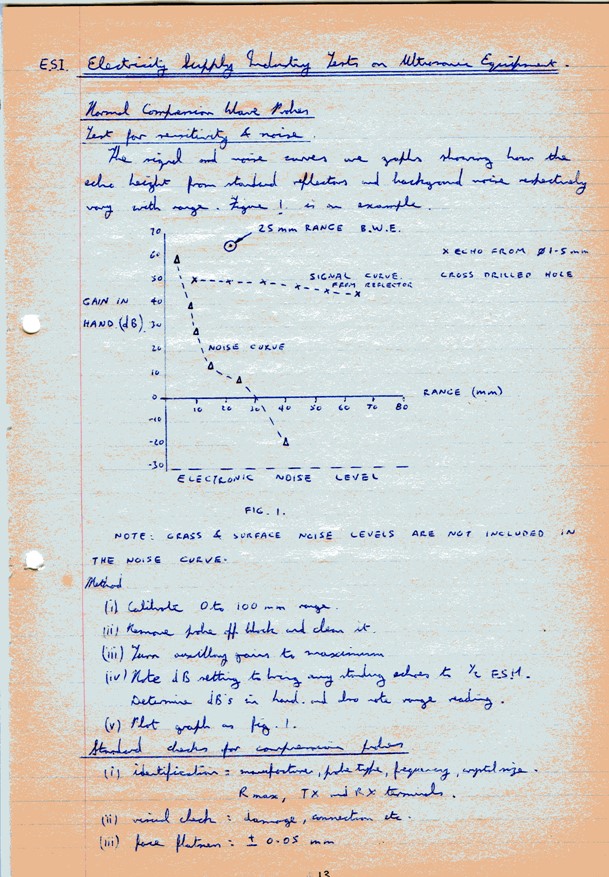 ESI. Electricity Supply Industry Tests on Ultrasonic Equipment.
Normal Compression Wave Probes
Test for sensitivity & noise.
The signal and noise curves are graphs showing how the
echo height from standard reflectors and background noise respectively
vary with range. Figure 1 is an example.
70
25 mm RANGE B.W.E.
60
X ECHO FROM Ø1-5 mm
CROSS DRILLED HOLE
50
SIGNAL CURVE.
FROM REFLECTOR
GAIN IN
HAND.(dB)
40
30
20
NOISE CURVE
10
0
RANGE (mm)
10 20 30 40 50 60 70 80
-10
-20
-30
ELECTRONIC NOISE LEVEL
FIG. 1.
NOTE: GRASS & SURFACE NOISE LEVELS ARE NOT INCLUDED IN
THE NOISE CURVE.
Method
(i) Calibrate 0 to 100 mm range.
(ii) Remove probe off block and clean it.
(iii) Turn auxillary gains to maximum
(iv) Note dB setting to bring any standing echoes to ½ F.S.H.
Determine dB's in hand. and also note range reading.
(v) Plot graph as fig. 1.
Standard checks for compression probes
(i) identification = manufacture, probe type, frequency, crystal size.
R max, TX and RX terminals.
(ii) visual check : damage, connection etc.
(iii) face flatness : ± 0.05 mm
13